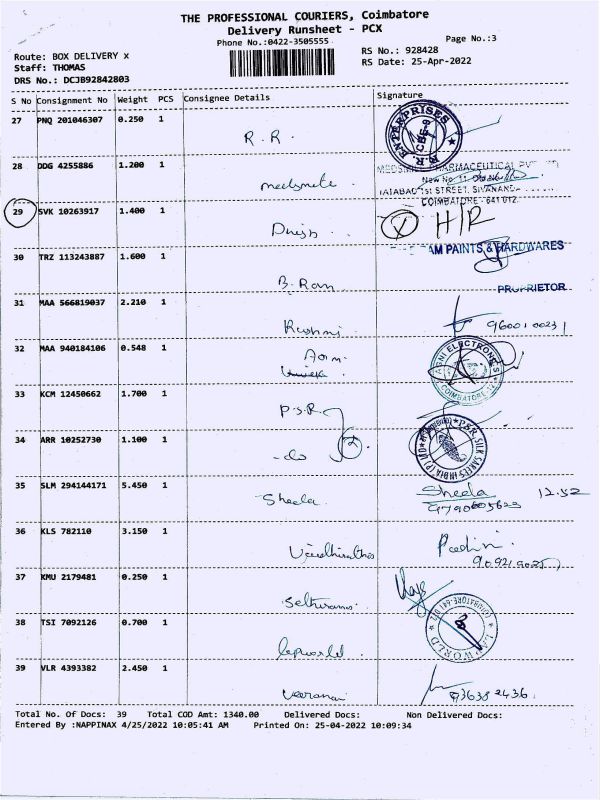 THE PROFESSIONAL COURIERS, Coimbatore
Delivery Runsheet - PCX
Phone No.:0422-3505555
Page No.:3
Route: BOX DELIVERY x
RS No.: 928428
Staff: THOMAS
RS Date: 25-Apr-2022
DRS No.: DCJB92842803
S No Consignment No Weight PCS Consignee Details Signature
27 PNQ 201046307 0.250 1 R.R. R.R. ENTERPRISES
28 DDG 4255886 1.200 1
PHARMACEUTICAL
New No. 11
1st STREET, SIVANAND
COIMBATORE - 641 012.
29 SVK 10263917 1.400 1 H/R
30 TRZ 113243887 1.600 1 B. Ram
AM PAINTS & HARDWARES
PROPRIETOR
31 MAA 566819037 2.210 1 Reshmi
32 MAA 940184106 0.548 1 AGNI ELECTRONICS COIMBATORE-12
33 KCM 12450662 1.700 1 P.S.R.
34 ARR 10252730 1.100 1 -do 2 P.S.R. SILK SAREES INDIA (P) LTD
35 SLM 294144171 5.450 1 Sheela Sheela 12.52
36 KLS 782110 3.150 1
37 KMU 2179481 0.250 1
38 TSI 7092126 0.700 1 Lapworld LAPWORLD COIMBATORE-641 012
39 VLR 4393382 2.450 1
Total No. Of Docs: 39 Total COD Amt: 1340.00 Delivered Docs: Non Delivered Docs:
Entered By :NAPPINAX 4/25/2022 10:05:41 AM Printed On: 25-04-2022 10:09:34